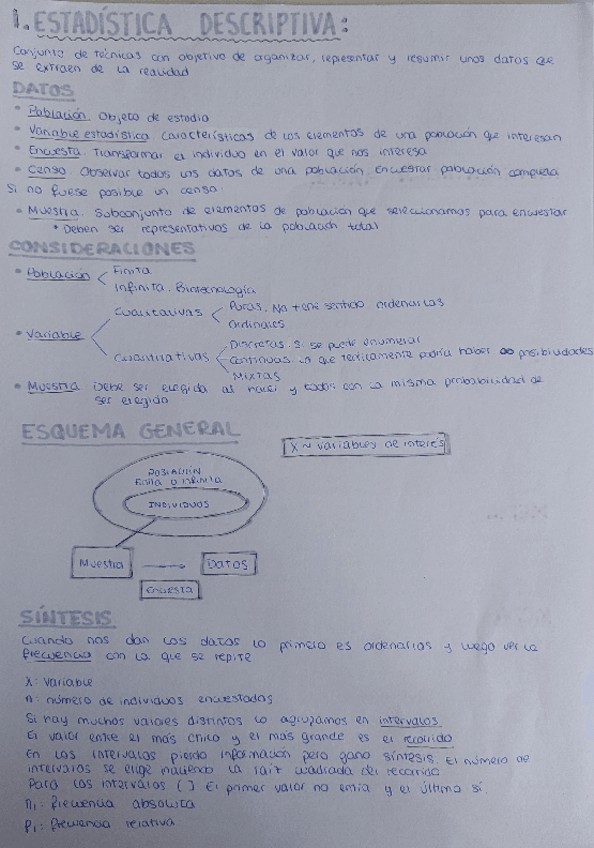 1. ESTADÍSTICA DESCRIPTIVA:
Conjunto de técnicas con objetivo de organizar, representar y resumir unos datos que
se extraen de la realidad
DATOS
• Población. Objeto de estudio
• Variable estadística. Características de los elementos de una población que interesan
• Encuesta. Transformar el individuo en el valor que nos interesa
• Censo. Observar todos los datos de una población. Encuestar población completa
Si no fuese posible un censo:
• Muestra. Subconjunto de elementos de población que seleccionamos para encuestar
• Deben ser representativos de la población total
CONSIDERACIONES
• Población < Finita
Infinita. Biotecnología
• Variable
Cualitativas < Puras. No tiene sentido ordenarlas
Ordinales
Cuantitativas < Discretas. Si se puede enumerar
Continuas. La que teóricamente podría haber ∞ posibilidades
Mixtas
• Muestra Debe ser elegida al azar y todos con la misma probabilidad de
ser elegido
ESQUEMA GENERAL
X ~ variables de interés
POBLACIÓN
Finita o infinita
INDIVIDUOS
Muestra → Datos
Encuesta
SÍNTESIS
Cuando nos dan los datos lo primero es ordenarlos y luego ver la
frecuencia con la que se repite
X: variable
n: número de individuos encuestados
Si hay muchos valores distintos lo agrupamos en intervalos
El valor entre el más chico y el mas grande es el recorrido.
En los intervalos pierdo información pero gano síntesis. El número de
intervalos se elige haciendo la raíz cuadrada del recorrido
Para los intervalos ( ] El primer valor no entra y el último sí.
ni: frecuencia absoluta
fi: frecuencia relativa